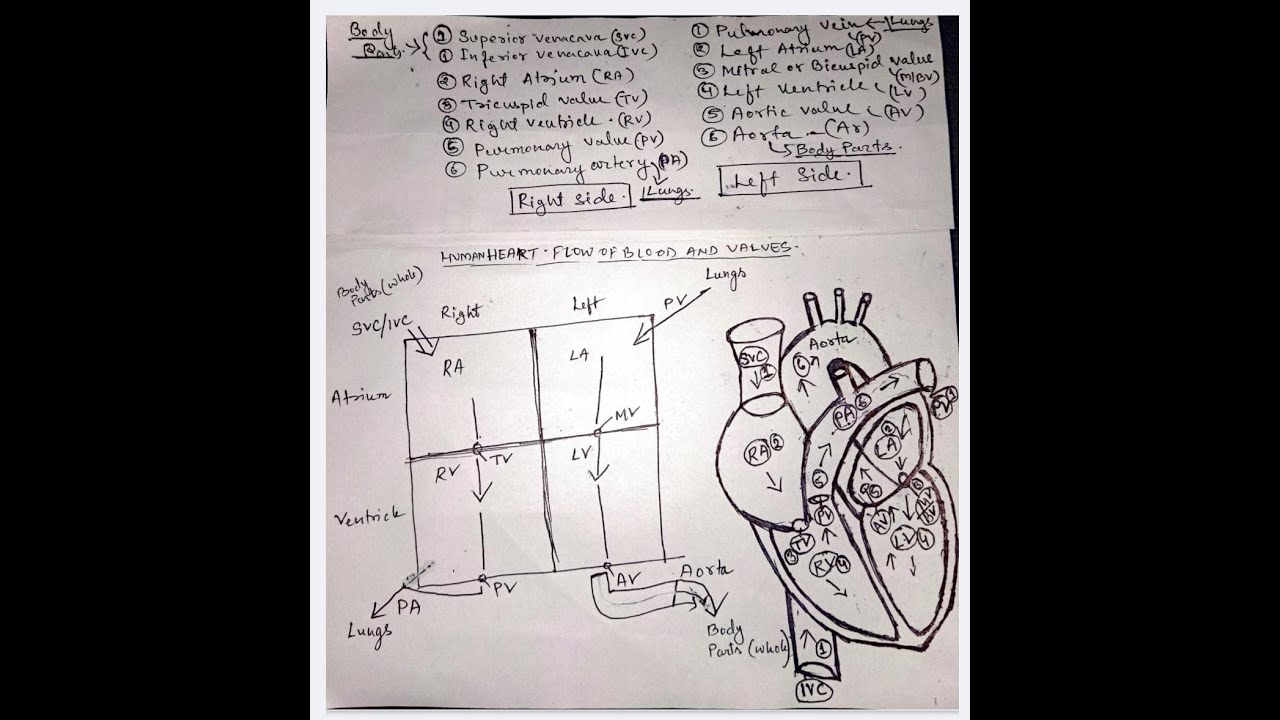 Body
Parts.
① Superior venacava (SVC)
① Inferior venacava (IVC)
② Right Atrium (RA)
③ Tricuspid value (TV)
④ Right ventricle. (RV)
⑤ Purmonary value (PV)
⑥ Purmonary artery (PA)
Lungs.
Right side.
① Pulmonary vein ← Lungs
(PV)
② Left Atrium (LA)
③ Mitral or Bicuspid value
(M/BV)
④ Left ventricle (LV)
⑤ Aortic value (AV)
⑥ Aorta (Ar)
Body Parts.
Left Side.
HUMAN HEART. FLOW OF BLOOD AND VALVES.
Body
Parts (whole)
SVC/IVC
Right
Left
PV
Lungs
RA
LA
Atrium
MV
RV
TV
LV
Ventricle
PA
PV
AV
Aorta
Lungs
Body
Parts (whole)
Aorta
SVC
①
6
PA 6
PV
RA 2
2
LA
6
5
PV
AV
3 TV
RV 4
LV 4
①
IVC